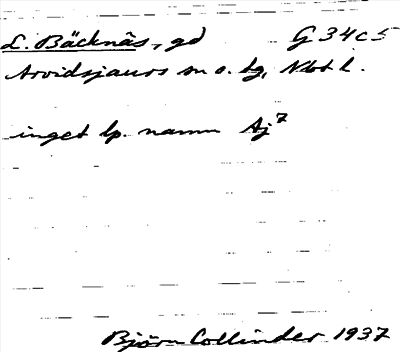 L. Bäcknäs, gd G 34c5
Arvidsjaurs sn o. tg, Nbt l.
inget lp. namn Aj7
Björn Collinder 1937